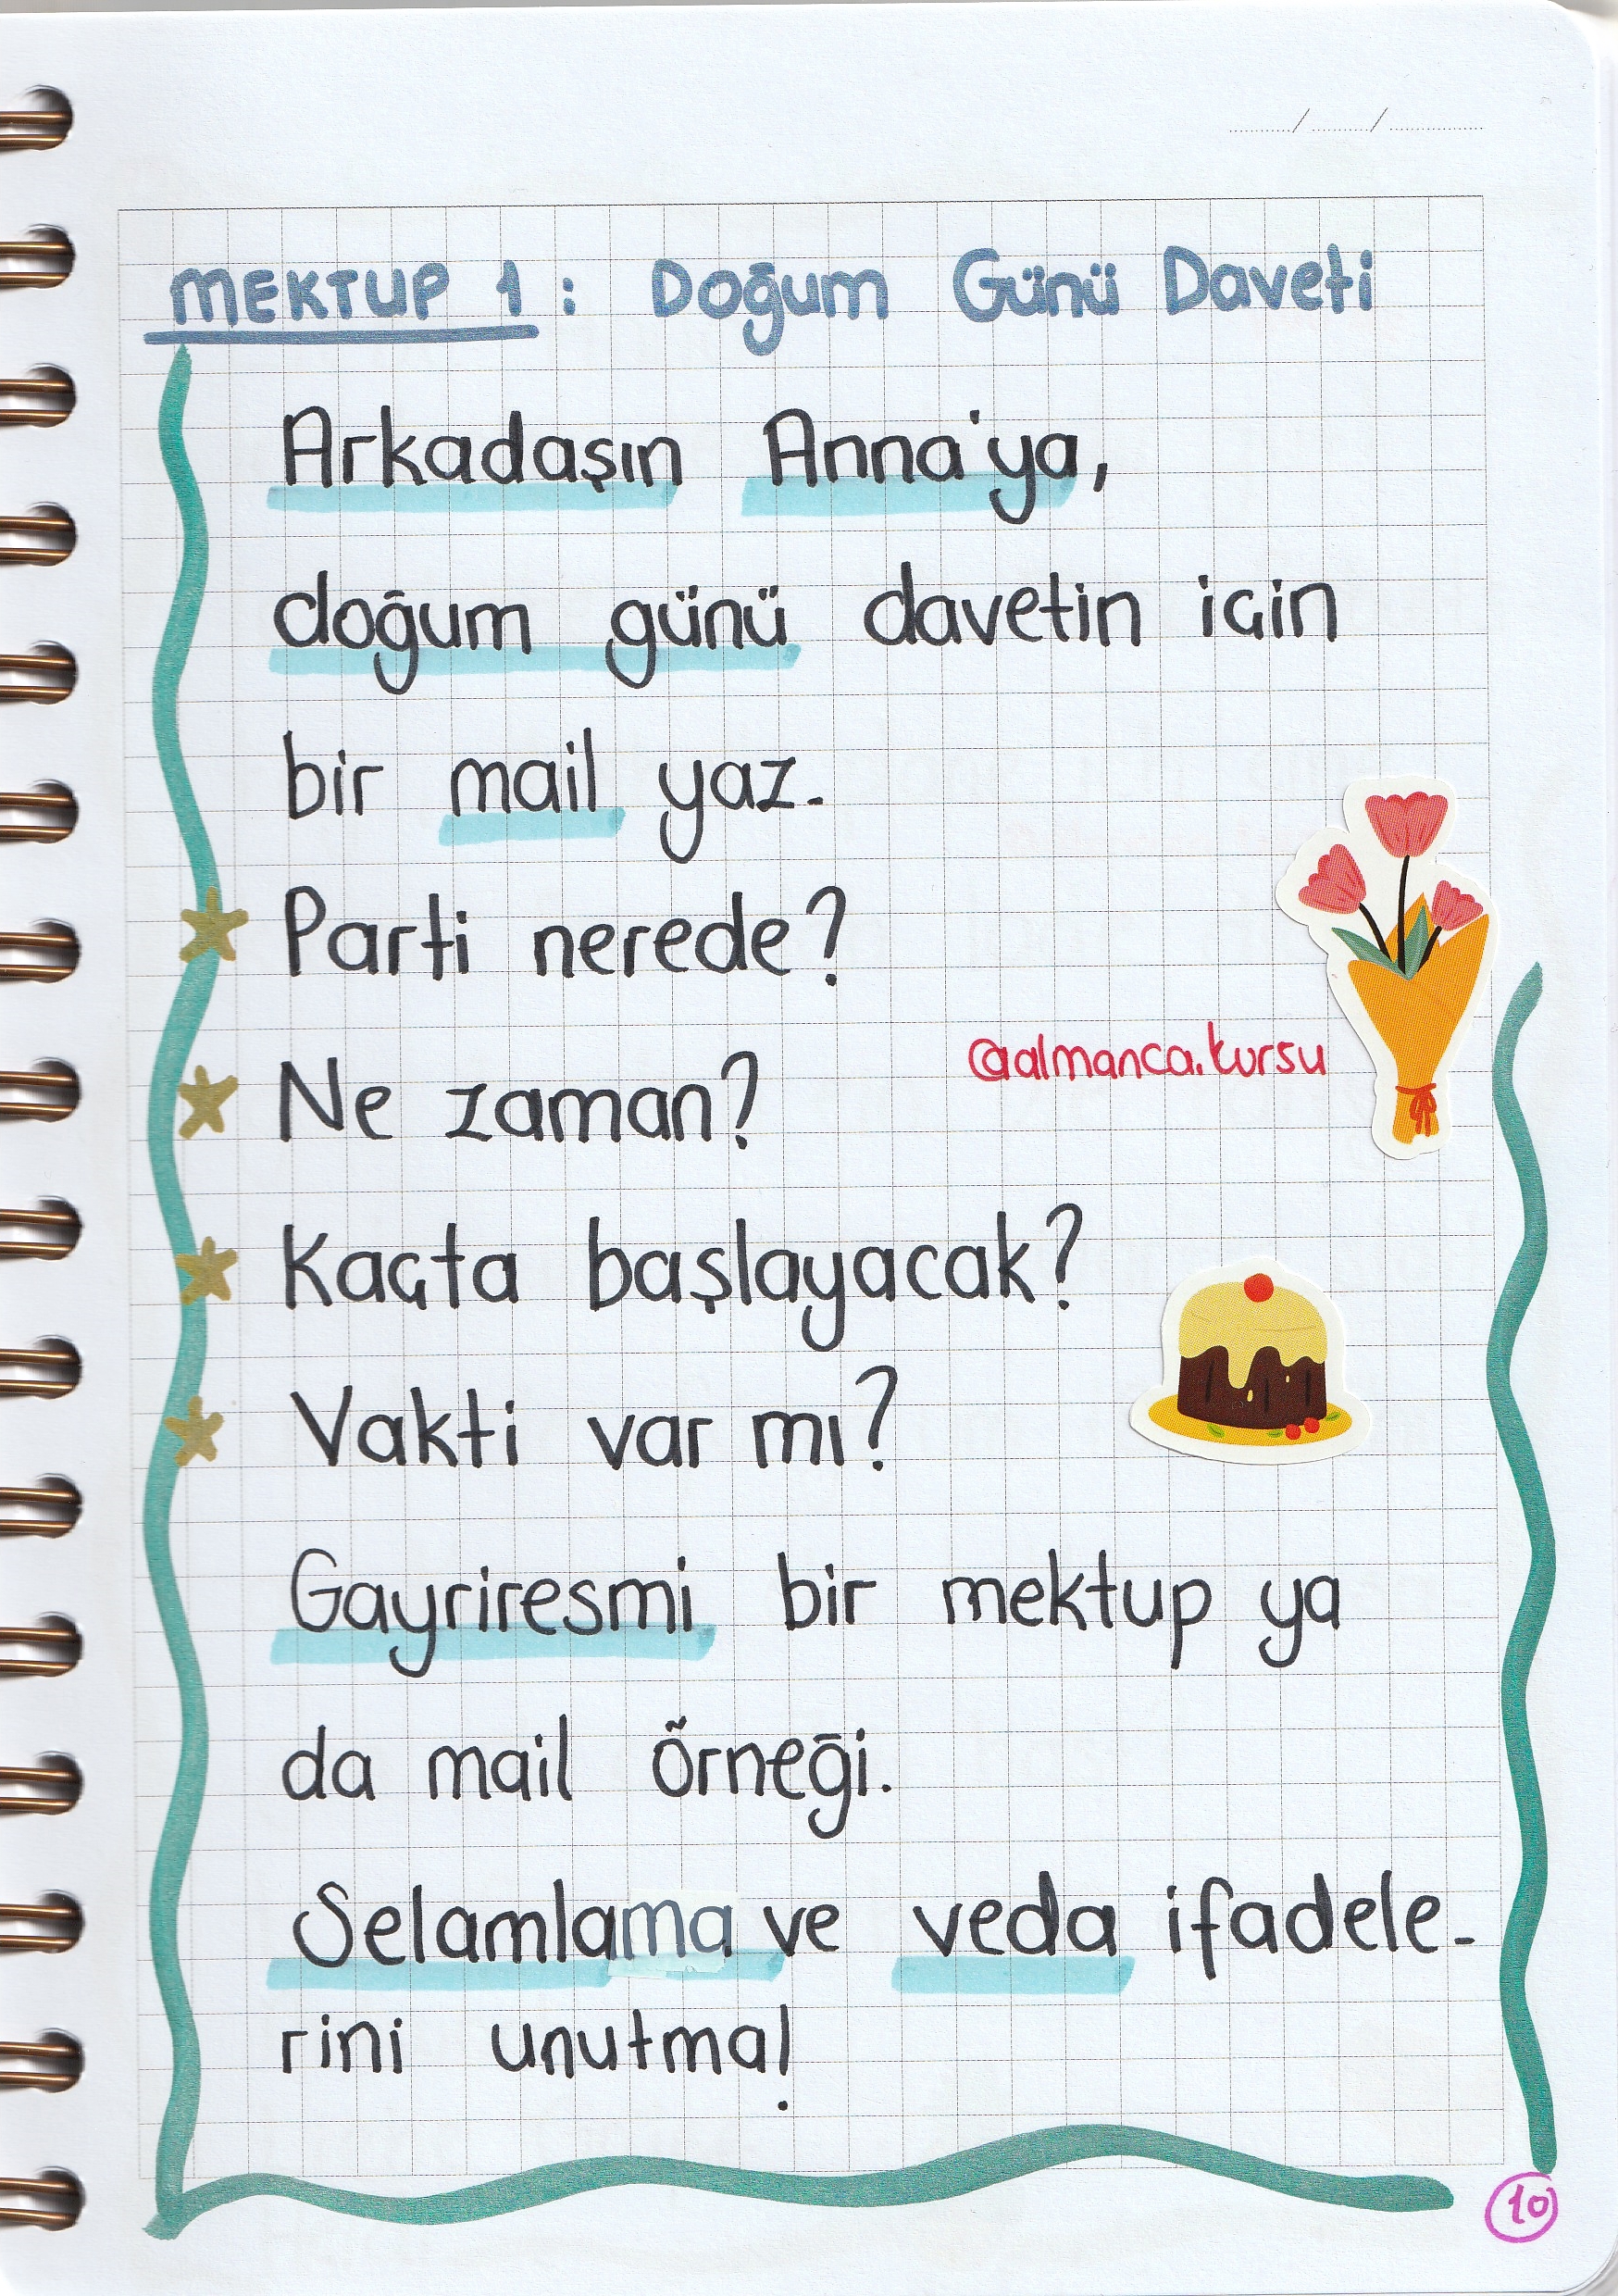 MEKTUP 1 : Doğum Günü Daveti
Arkadaşın Anna'ya,
doğum günü davetin için
bir mail yaz.
Parti nerede?
@almanca.kursu
Ne zaman?
Kaçta başlayacak?
Vakti var mı?
Gayriresmi bir mektup ya
da mail örneği.
Selamlama ve veda ifadele-
rini unutma!
10